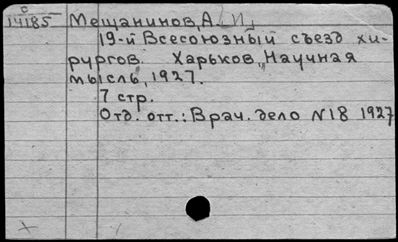 С
14185
Мещанинов, А. [И.]
19-й Всесоюзный съезд хи-
рургов. Харьков, "Научная
мысль", 1927.
7 стр.
Отд. отт.: Врач. дело №18 1927